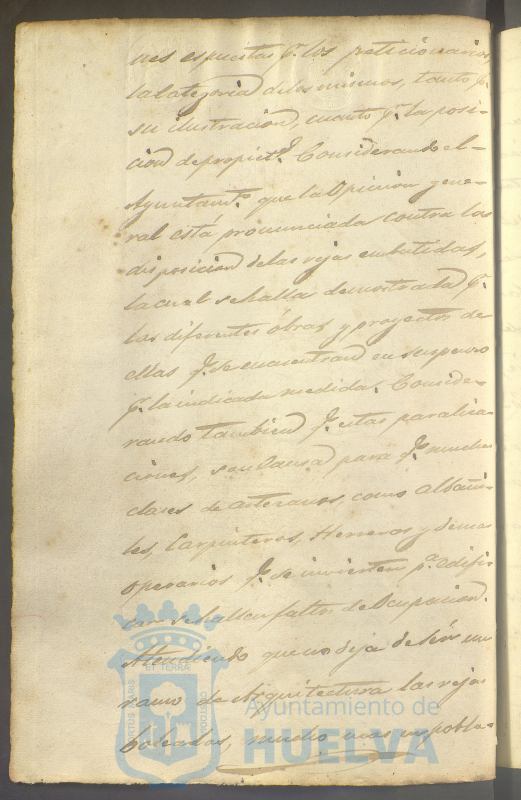 nes espuestas p.r los peticionarios,
la categoria de los mismos, tanto p.r
su ilustracion, cuanto p.r la posi-
cion de propiet.s Considerando el
Ayuntam.to que la Opinion gene-
ral está pronunciada contra las
disposicion de las rejas embutidas,
la cual se halla demostrada p.r
las diferentes óbras y proyectos de
ellas q.e se encuentran en suspenso
p.r la indicada medida. Conside-
rando tambien q.e estas paraliza-
ciones, son causa para q.e muchas
clases de artesanos, como albañi-
les, Carpinteros, Herreros y demas
operarios q.e se invierten p.a edifi-
car se hallen faltos de Ocupacion.
Atendiendo que no deja de sér un
ramo de Arquitectura las rejas
boleadas, mucho mas en pobla-
Ayuntamiento de
HUELVA
ET TERRAE
PORTUS MARIS
CUSTODIA